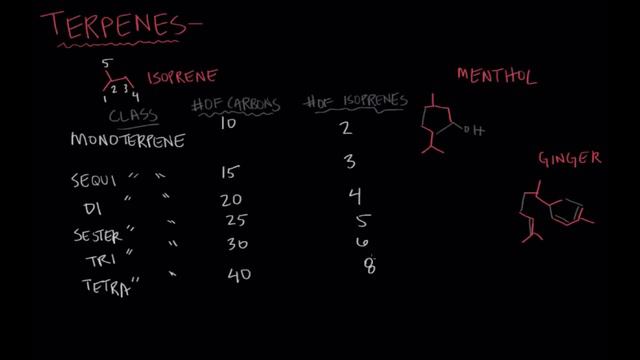 TERPENES-
5
ISOPRENE
1 2 3 4
MENTHOL
CLASS # OF CARBONS # OF ISOPRENES
MONOTERPENE 10 2
OH
GINGER
SEQUI " " 15 3
DI " " 20 4
SESTER " " 25 5
TRI " " 30 6
TETRA " " 40 8